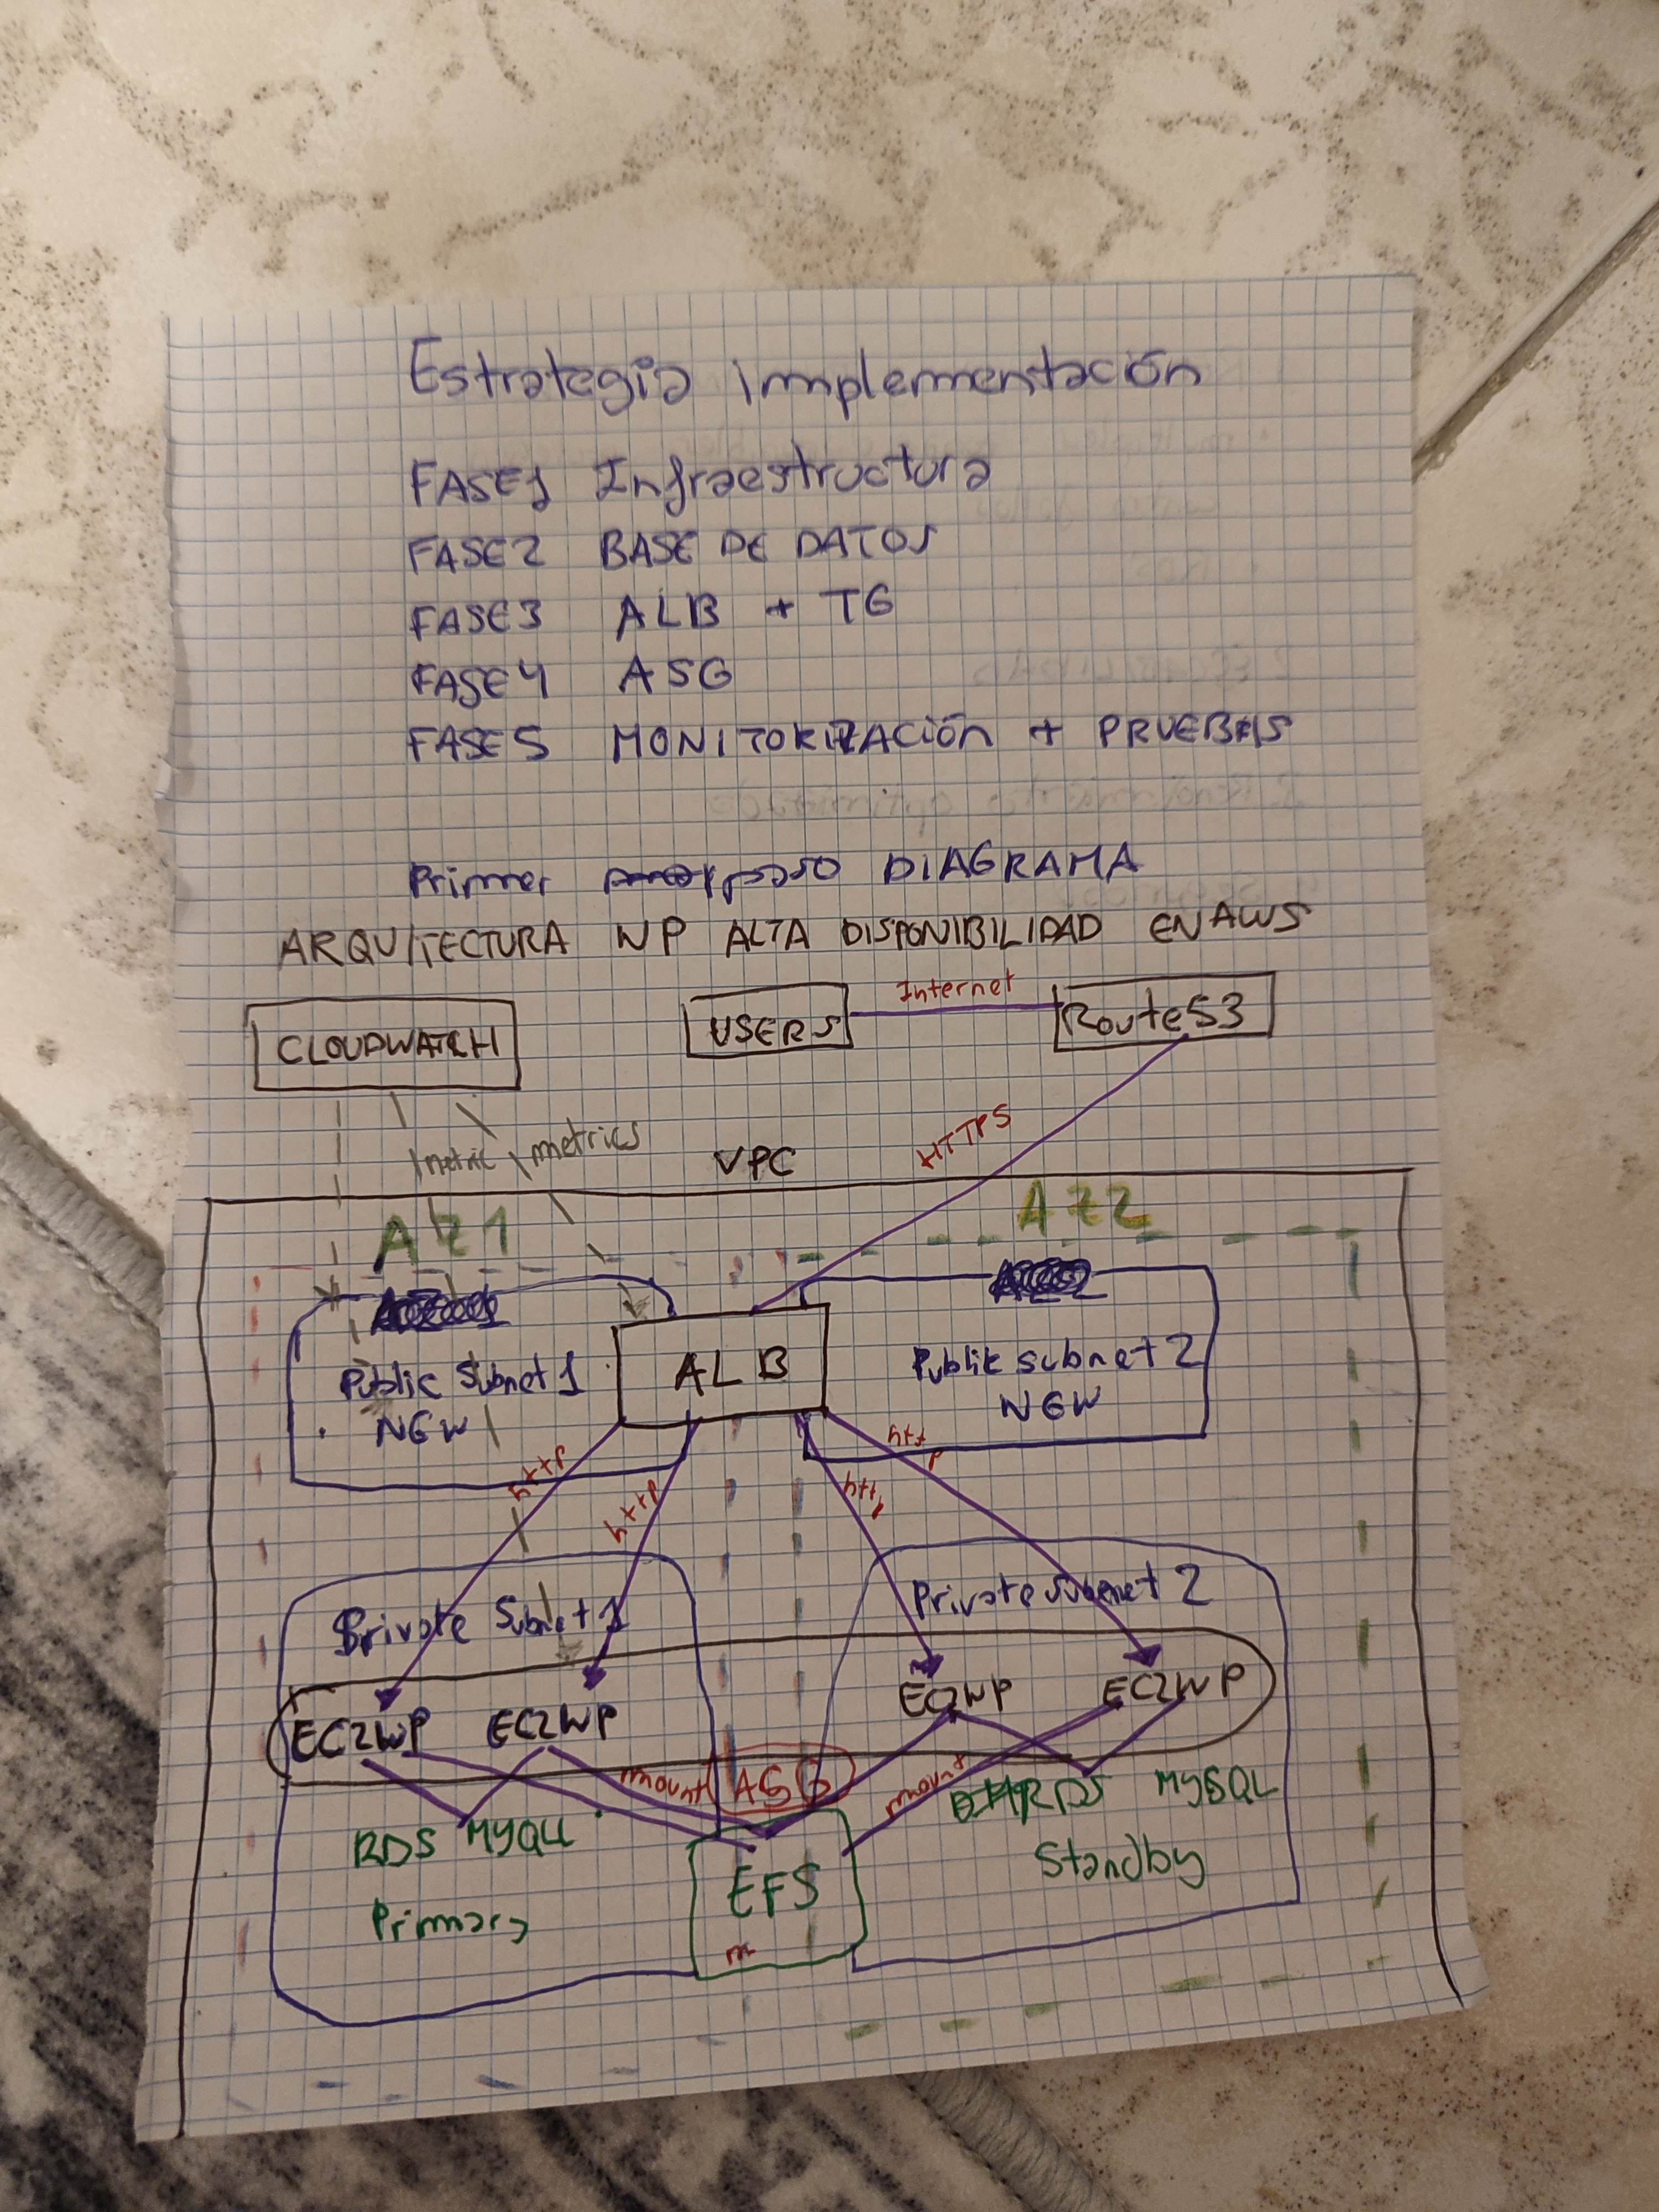 Estrategia implementación
FASE1 Infraestructura
FASE2 BASE DE DATOS
FASE3 ALB + TG
FASE4 ASG
FASE5 MONITORIZACIÓN + PRUEBAS
Primer paso DIAGRAMA
ARQUITECTURA WP ALTA DISPONIBILIDAD EN AWS
CLOUDWATCH
USERS
Internet
Route53
metric
metrics
VPC
HTTPS
AZ1
AZ2
Public Subnet 1
NGW
ALB
Public subnet 2
NGW
http
http
http
http
Private Subnet 1
Private Subnet 2
EC2WP
EC2WP
EC2WP
EC2WP
mount
ASG
mount
RDS MYSQL
Primary
RDS MYSQL
Standby
EFS